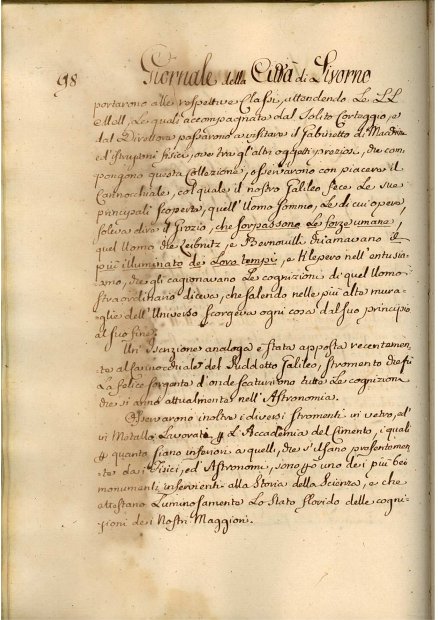 98
Giornale della Città di Livorno
portarono alle respettive Classi, attendendo Le LL
MM, Le quali accompagnate dal Solito Corteggio, e
dal Direttore passarono a visitare il Gabinetto di Macchine
ed istrumenti fisici, ove tra gl'altri oggetti preziosi, che com
pongono questa Collezione, osservarono con piacere il
Cannocchiale, col quale il nostro Galileo fece Le sue
principali scoperte, quell'Uomo sommo, Le di cui opere
soleva dire il Grozio, che sorpassono Le forze umane,
quel Uomo che Leibnitz, e Bernoulli chiamavano il
più illuminato de Loro tempi, e Keplero nell'entusi
asmo, che gli cagionavano Le cognizioni di quel Uomo
straordinario diceva, che salendo nelle più alte mura
glie dell'Universo scorgeva ogni cosa dal suo principio
al suo fine.
Un'Iscrizione analoga è stata apposta recentemen
te al Cannocchiale del suddetto Galileo, stromento che fu
La felice sorgente d'onde scaturirono tutte Le cognizioni
che si anno attualmente nell'Astronomia.
Osservarono inoltre i diversi stromenti in vetro, ed
in Metallo Lavorati p L'Accademia del Cimento, i quali
p quanto siano inferiori a quelli, che s'usano presentemen
te da i Fisici, ed Astronomi, sono p uno dei più bei
monumenti inservienti alla Storia della Scienza, e che
attestano Luminosamente Lo Stato florido delle cogni
zioni dei Nostri Maggiori.